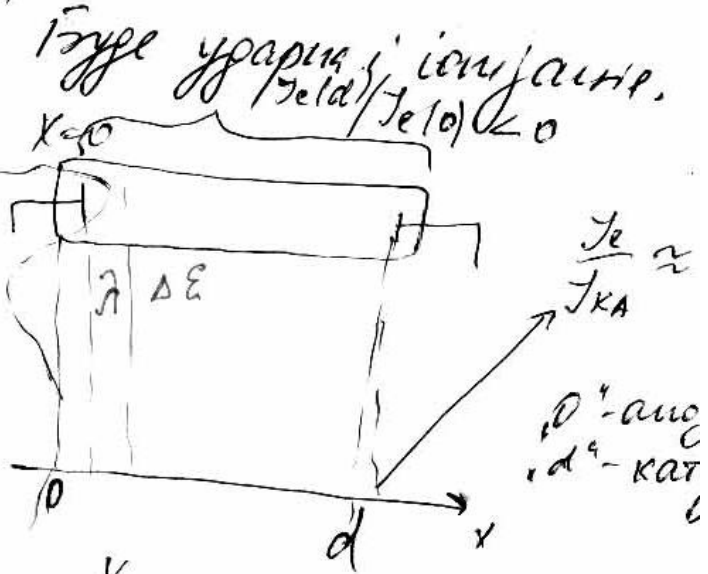 Буде ударна іонізація.
Je(d)/Je(0) < 0
x=0
λ Δε
Je/JKA ≈
„0“-анод
„d“-кат
0 d x